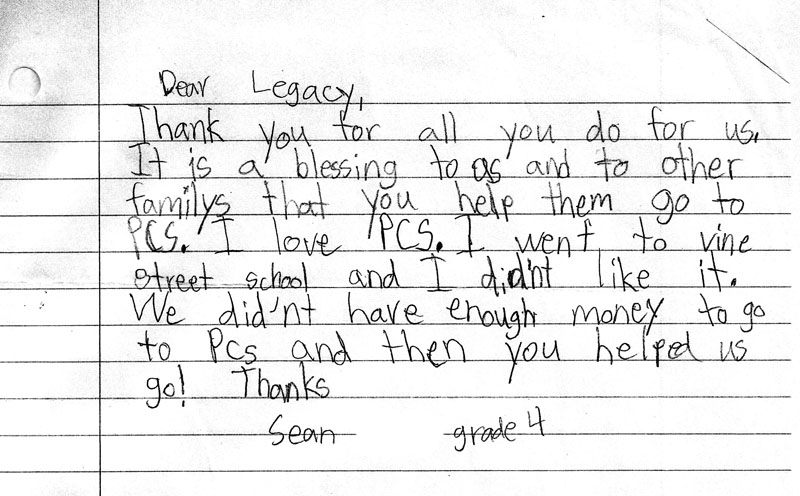 Dear Legacy,
Thank you for all you do for us.
It is a blessing to as and to other
familys that you help them go to
PCS. I love PCS. I went to vine
street school and I didn't like it.
We did'nt have enough money to go
to PCs and then you helped us
go! Thanks
Sean grade 4